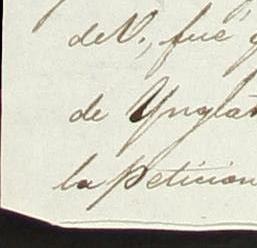 de V., fué
de Ynglat
la peticion